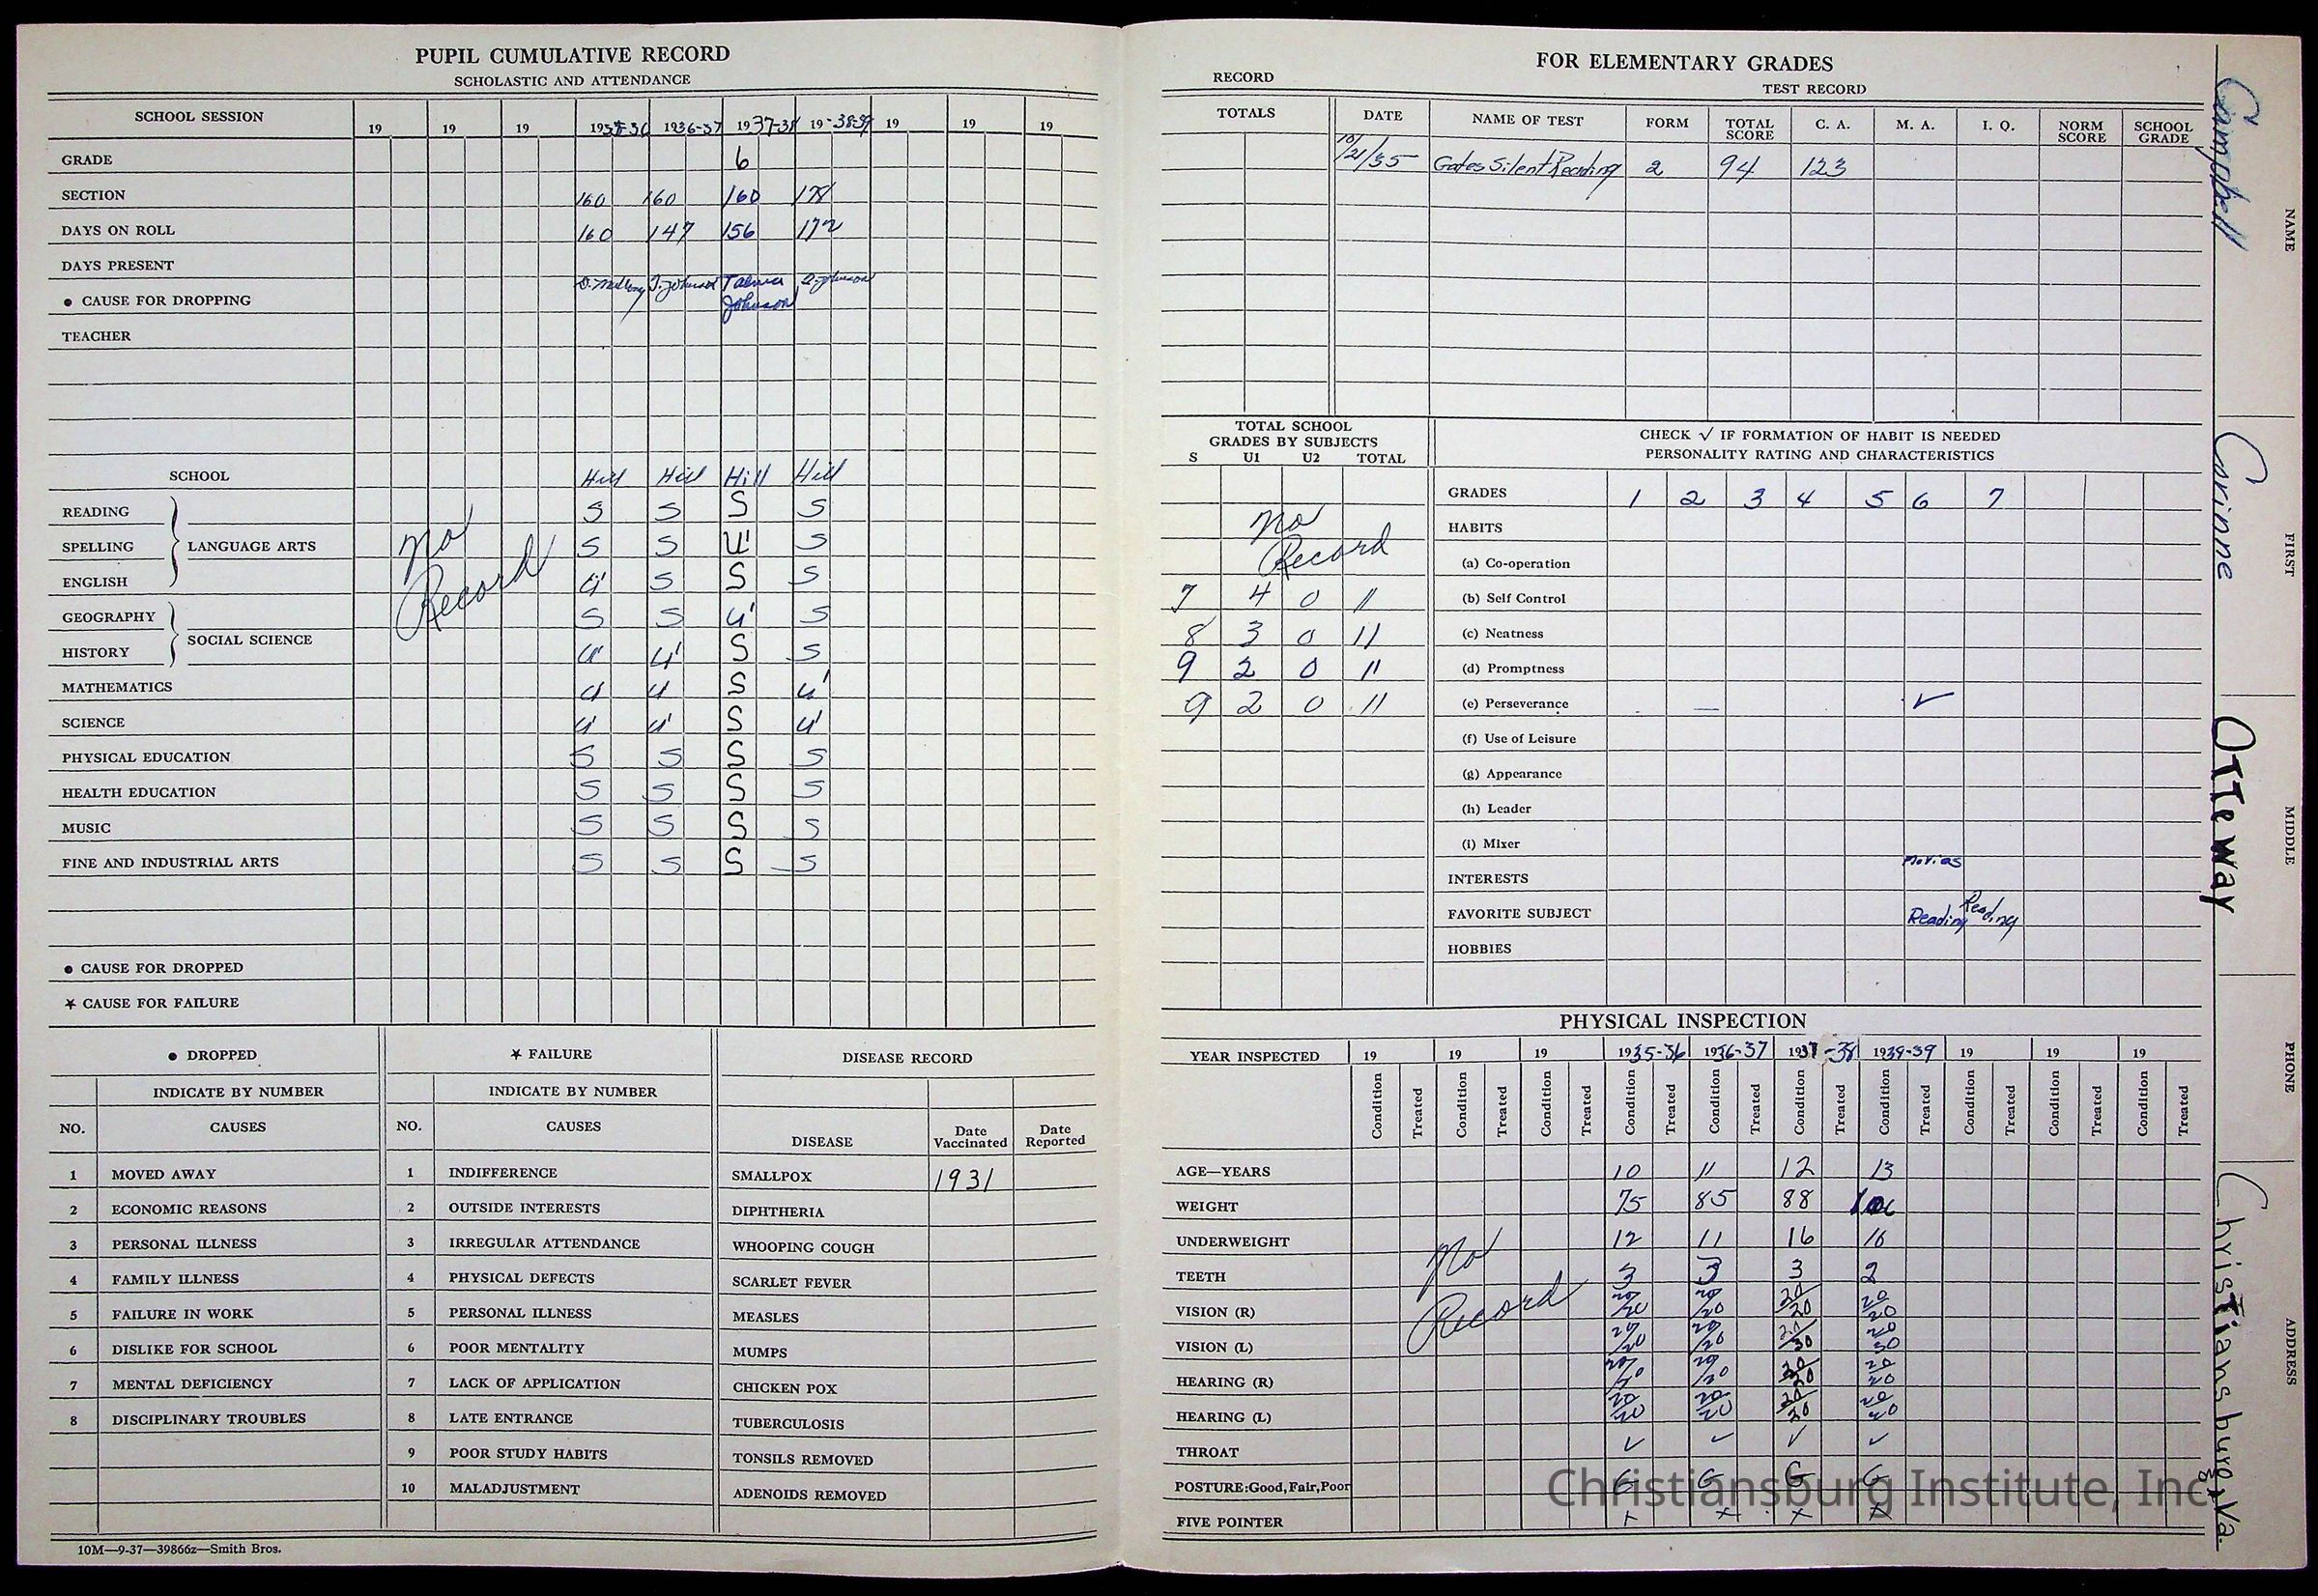 PUPIL CUMULATIVE RECORD
SCHOLASTIC AND ATTENDANCE
SCHOOL SESSION 19 19 19 1935-36 1936-37 1937-38 19-38-39 19 19 19
GRADE 6
SECTION 160 160 160 178
DAYS ON ROLL 160 147 156 172
DAYS PRESENT
● CAUSE FOR DROPPING T. Johnson Talmer Johnson Johnson
TEACHER
SCHOOL Hill Hill Hill Hill
No Record
READING S S S S
SPELLING S S U' S
LANGUAGE ARTS
ENGLISH U' S S S
GEOGRAPHY S S U' S
SOCIAL SCIENCE
HISTORY U' U' S S
MATHEMATICS U U S U'
SCIENCE U' U' S U'
PHYSICAL EDUCATION S S S S
HEALTH EDUCATION S S S S
MUSIC S S S S
FINE AND INDUSTRIAL ARTS S S S S
● CAUSE FOR DROPPED
★ CAUSE FOR FAILURE
● DROPPED
INDICATE BY NUMBER
NO. CAUSES
1 MOVED AWAY
2 ECONOMIC REASONS
3 PERSONAL ILLNESS
4 FAMILY ILLNESS
5 FAILURE IN WORK
6 DISLIKE FOR SCHOOL
7 MENTAL DEFICIENCY
8 DISCIPLINARY TROUBLES
★ FAILURE
INDICATE BY NUMBER
NO. CAUSES
1 INDIFFERENCE
2 OUTSIDE INTERESTS
3 IRREGULAR ATTENDANCE
4 PHYSICAL DEFECTS
5 PERSONAL ILLNESS
6 POOR MENTALITY
7 LACK OF APPLICATION
8 LATE ENTRANCE
9 POOR STUDY HABITS
10 MALADJUSTMENT
DISEASE RECORD
DISEASE Date Vaccinated Date Reported
SMALLPOX 1931
DIPHTHERIA
WHOOPING COUGH
SCARLET FEVER
MEASLES
MUMPS
CHICKEN POX
TUBERCULOSIS
TONSILS REMOVED
ADENOIDS REMOVED
10M—9-37—39866z—Smith Bros.
FOR ELEMENTARY GRADES
RECORD
TEST RECORD
TOTALS DATE NAME OF TEST FORM TOTAL SCORE C. A. M. A. I. Q. NORM SCORE SCHOOL GRADE
10/21/35 Gates Silent Reading 2 94 123
TOTAL SCHOOL
GRADES BY SUBJECTS
S U1 U2 TOTAL
No Record
7 4 0 11
8 3 0 11
9 2 0 11
9 2 0 11
CHECK ✓ IF FORMATION OF HABIT IS NEEDED
PERSONALITY RATING AND CHARACTERISTICS
GRADES 1 2 3 4 5 6 7
HABITS
(a) Co-operation
(b) Self Control
(c) Neatness
(d) Promptness
(e) Perseverance ✓
(f) Use of Leisure
(g) Appearance
(h) Leader
(i) Mixer
INTERESTS Movies
FAVORITE SUBJECT Reading Reading
HOBBIES
PHYSICAL INSPECTION
YEAR INSPECTED 19 19 19 1935-36 1936-37 1937-38 1939-39 19 19 19
Condition Treated Condition Treated Condition Treated Condition Treated Condition Treated Condition Treated Condition Treated Condition Treated Condition Treated Condition Treated
No Record
AGE—YEARS 10 11 12 13
WEIGHT 75 85 88
UNDERWEIGHT 12 11 16 16
TEETH 3 3 3 2
VISION (R) 20/20 20/20 20/20 20/20
VISION (L) 20/20 20/20 20/30 20/30
HEARING (R) 20/20 20/20 20/20 20/20
HEARING (L) 20/20 20/20 20/20 20/20
THROAT ✓ ✓ ✓ ✓
POSTURE:Good,Fair,Poor G G G G
FIVE POINTER x x x x
Campbell
NAME
Corinne
FIRST
Otteway
MIDDLE
PHONE
Christiansburg, Va.
ADDRESS
Christiansburg Institute, Inc.